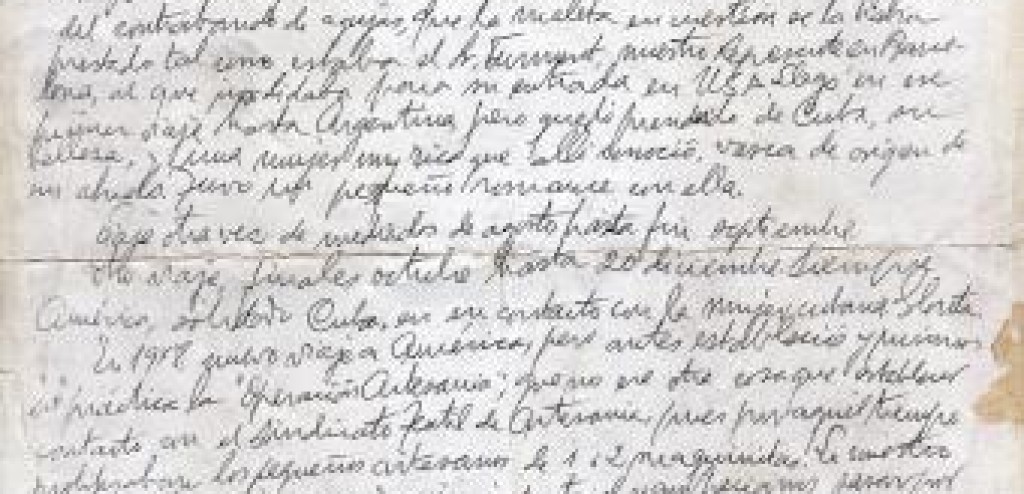 del contrabando de agujas, que la maleta en cuestión se la había
prestado tal como estaba el Sr. Turmont, nuestro Represente en Barce-
lona, al que para su entrada en USA Llegó en ese
primer viaje hasta Argentina, pero quedó prendado de Cuba, su
belleza, y una mujer muy rica que allí conoció, vasca de origen de
un abuelo. Tuvo un pequeño romance con ella.
otra vez de mediados de agosto hasta fin septiembre
Otro viaje finales octubre hasta 20 diciembre siempre
América, sobretodo Cuba, en en contacto con la mujer cubana
En 19 nuevo viaje a América, pero antes estableció y pusimos
en práctica la "Operación Artesanía"; que no era otra cosa que establecer
contacto con el Sindicato Textil de Artesanía, pues por aquel tiempo
los pequeños artesanos de 1 ó 2 maquinitas.